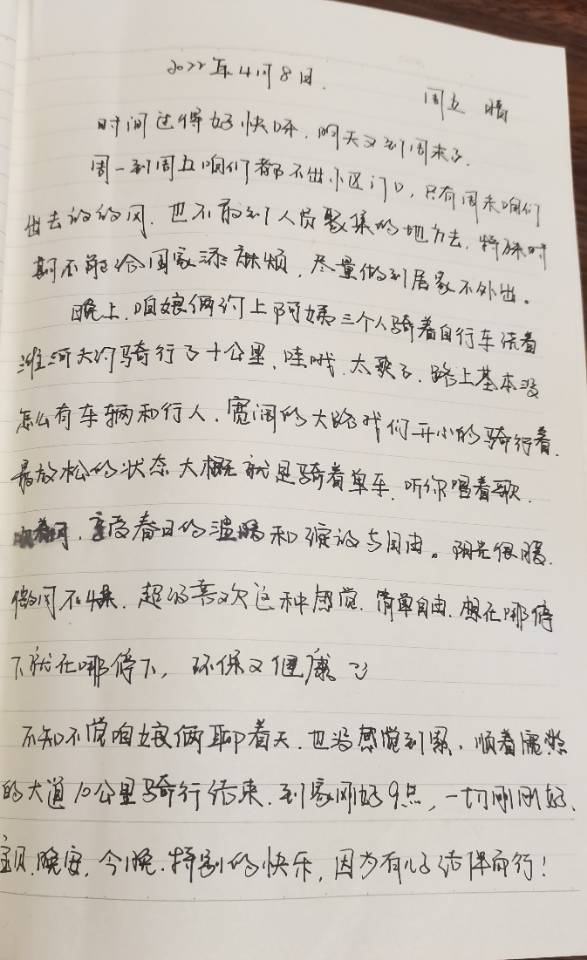 2022年4月8日.
周五 晴
时间过得好快呀, 明天又到周末了.
周一到周五咱们都不出小区门口, 只有周末咱们
出去的的风. 也不敢到人员聚集的地方去, 特殊时
期不能给国家添麻烦, 尽量做到居家不外出。
晚上, 咱娘俩约上阿姨三个人骑着自行车绕着
潍河大沟骑行了十公里, 哇哦, 太爽了, 路上基本没
怎么有车辆和行人, 宽阔的大路我们开心的骑行着.
最放松的状态大概就是骑着单车, 听你唱着歌,
享受春日的温暖和绽放与自由。阳光很暖,
微风不燥, 超级喜欢这种感觉, 简单自由, 想在哪停
下就在哪停下, 环保又健康
不知不觉咱娘俩聊着天, 也没感觉到累, 顺着
的大道10公里骑行结束, 到家刚好9点, 一切刚刚好,
宝贝, 晚安, 今晚, 特别的快乐, 因为有儿子结伴而行!